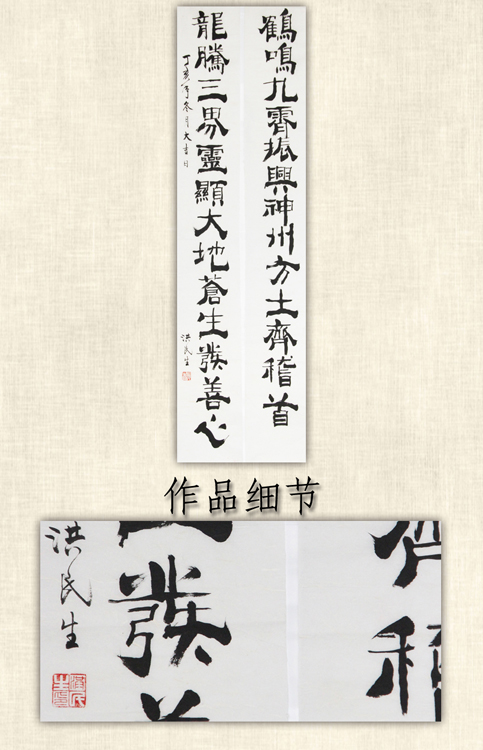 鶴鳴九霄振興神州方土齊稽首
龍騰三界靈顯大地蒼生發善心
丁亥年冬月大吉日
洪民生
作品细节
洪民生
發
齊稽